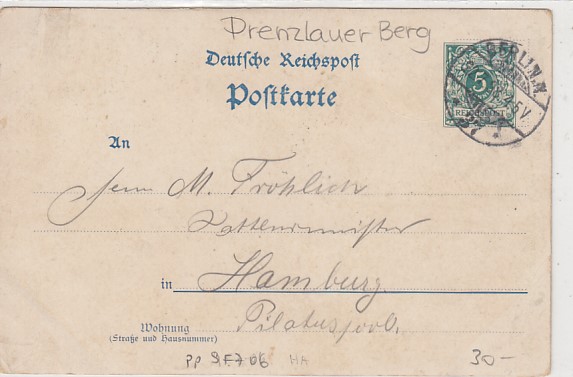 Prenzlauer Berg
Deutsche Reichspost
Postkarte
5
REICHSPOST
BERLIN, N.
4-5V
37
An
Herrn M. Fröhlich
in Hamburg
Pilatuspool.
Wohnung
(Straße und Hausnummer)
pp 9F706 HA
30-